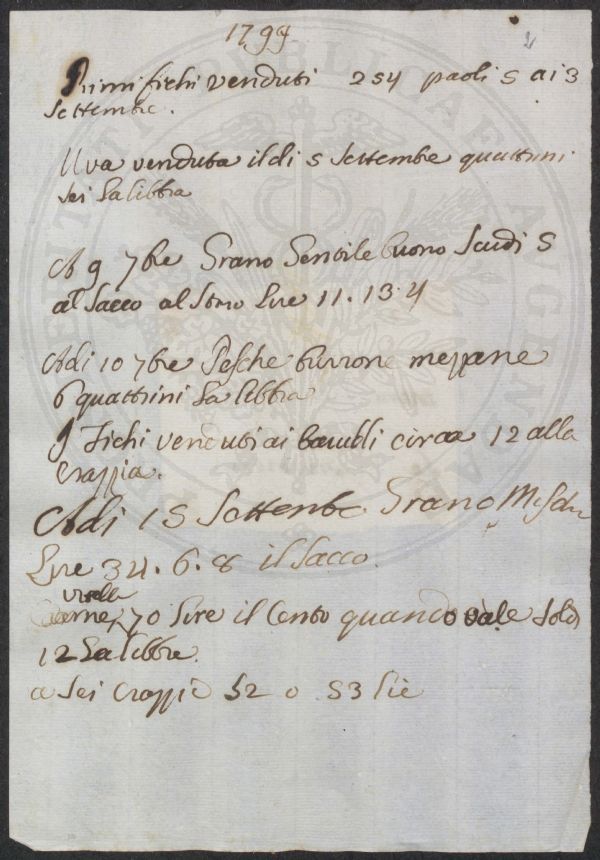 1799
Primi fichi venduti 254 paoli 5 ai 3
Settembre.
Uva venduta il di 5 Settembre quattrini
sei la libbra
A 9 7bre Grano Gentile buono Scudi 5
al Sacco al Somo Lire 11.13.4
Adi 10 7bre Pesche burrone mezzane
6 quattrini la libbra
9 Fichi venduti ai circa 12 alla
Crazzia.
Adi 15 Settembre Grano
Lire 34.6.8 il Sacco.
vitella
Carne 70 lire il Cento quando vale Soldi
12 la libbra.
a Sei Crazzie 52 o 53 lie